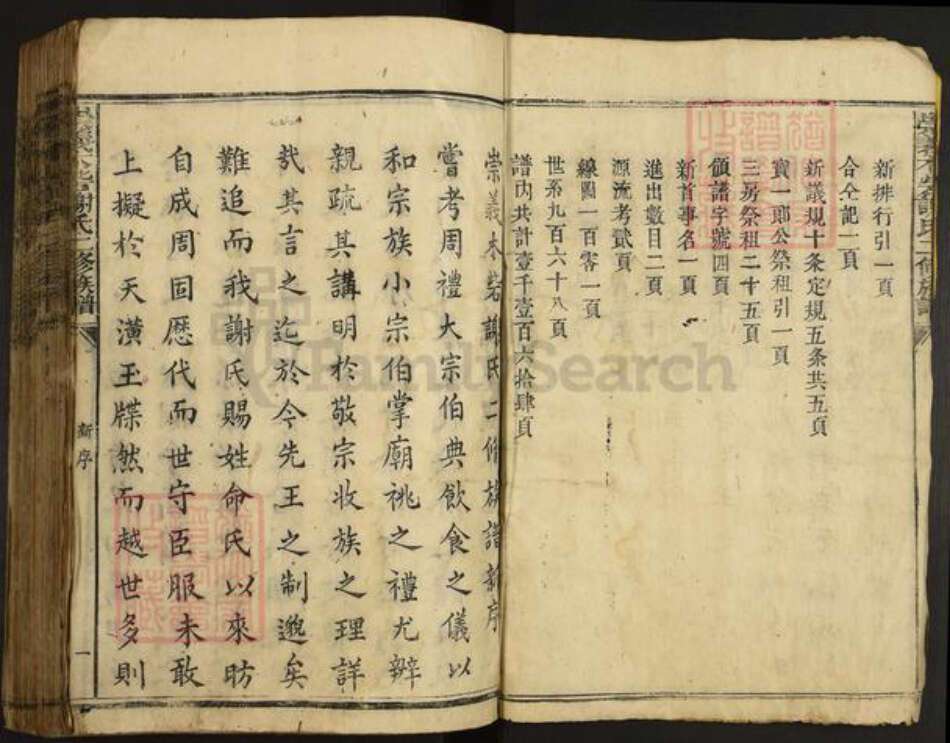 新排行引一頁
合仝記一頁
新議規十条定規五条共五頁
寶一郎公祭祖引一頁
三房祭祖二十五頁
領譜字號四頁
新首事名一頁
進出數目二頁
源流考貳頁
線圖一百零一頁
世系九百六十八頁
譜內共計壹千壹百六拾肆頁
崇義謝氏二修族譜新序
嘗考周禮大宗伯典飲食之儀以
和宗族小宗伯掌廟祧之禮尤辨
親疏其講明於敬宗收族之理詳
哉其言之迄於今先王之制邈矣
難追而我謝氏賜姓命氏以來昉
自成周固歷代而世守臣服未敢
上擬於天潢玉牒然而越世多則
謝氏二修族譜
新序
一
FamilySearch